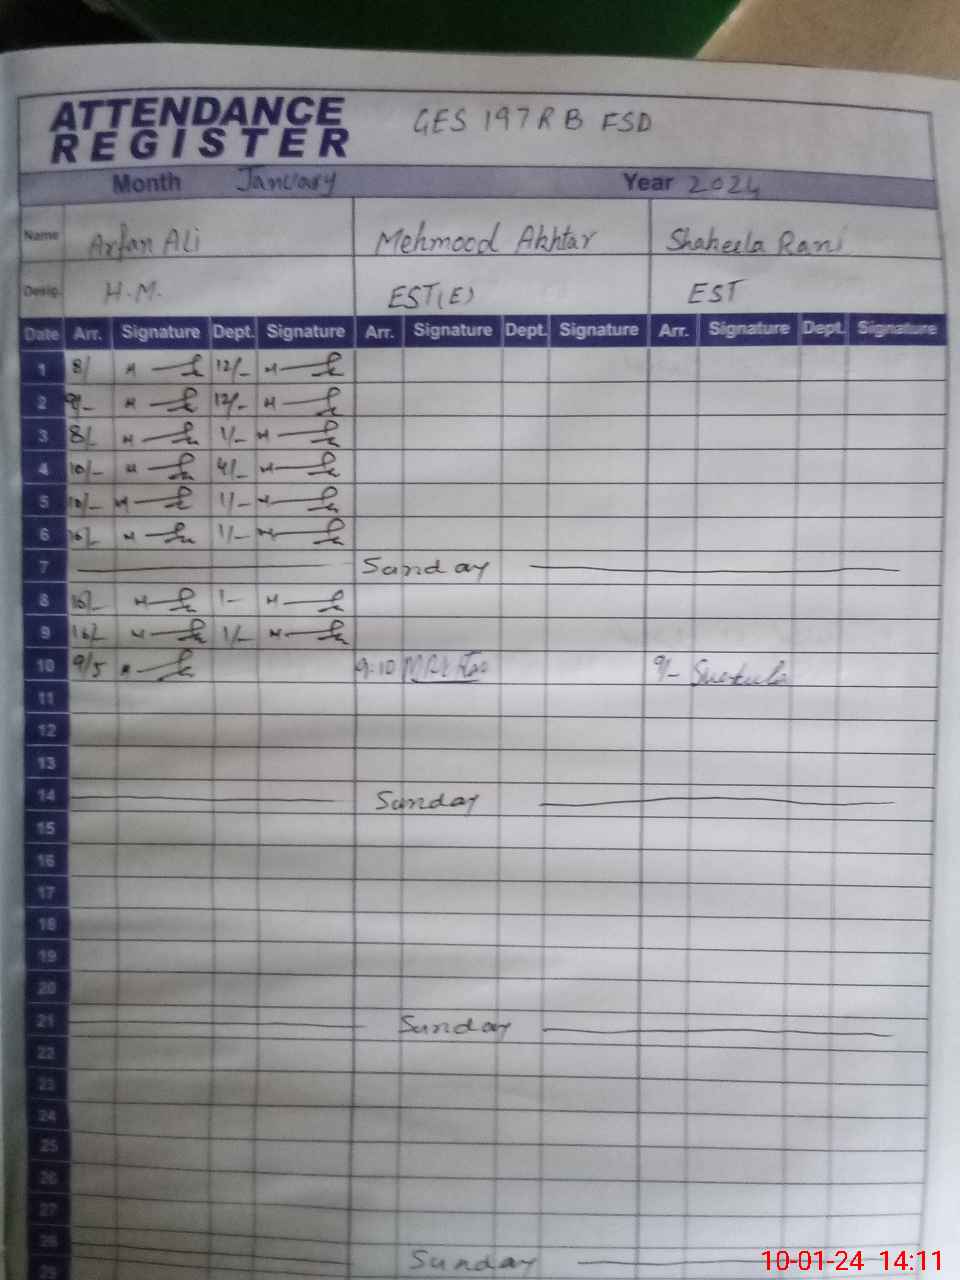 ATTENDANCE
REGISTER
GES 197RB FSD
Month January Year 2024
Name Arfan Ali Mehmood Akhtar Shaheela Rani
Desig. H.M. EST(E) EST
Date Arr. Signature Dept. Signature Arr. Signature Dept. Signature Arr. Signature Dept. Signature
1 8/ 12/-
2 9/- 12/-
3 8/- 1/-
4 10/- 4/-
5 10/- 1/-
6 1/-
7 Sunday
8 1-
9 1/-
10 9/5 9.10 9/-
11
12
13
14 Sunday
15
16
17
18
19
20
21 Sunday
22
23
24
25
26
27
28 Sunday
29
10-01-24 14:11